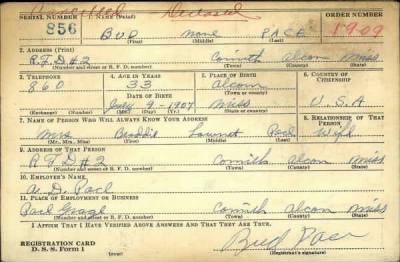 Cancelled Deceased
SERIAL NUMBER 1. NAME (Print) ORDER NUMBER
856 BUD none PACE 1909
(First) (Middle) (Last)
2. ADDRESS (Print)
R.F.D#2 Corinth Alcorn Miss
(Number and street or R. F. D. number) (Town) (County) (State)
3. TELEPHONE 4. AGE IN YEARS 5. PLACE OF BIRTH 6. COUNTRY OF CITIZENSHIP
860 33 Alcorn
DATE OF BIRTH (Town or county)
July 9-1907 Miss U.S.A
(Mo.) (Day) (Yr.) (State or country)
7. NAME OF PERSON WHO WILL ALWAYS KNOW YOUR ADDRESS 8. RELATIONSHIP OF THAT PERSON
Mrs Pace Wife
(Mr., Mrs., Miss) (First) (Middle) (Last)
9. ADDRESS OF THAT PERSON
R F D #2 Corinth Alcorn Miss
(Number and street or R. F. D. number) (Town) (County) (State)
10. EMPLOYER'S NAME
A. D. Pace
11. PLACE OF EMPLOYMENT OR BUSINESS
Pace Corinth Alcorn Miss
(Number and street or R. F. D. number) (Town) (County) (State)
I AFFIRM THAT I HAVE VERIFIED ABOVE ANSWERS AND THAT THEY ARE TRUE.
REGISTRATION CARD
D. S. S. Form 1
Bud Pace
(Registrant's signature)